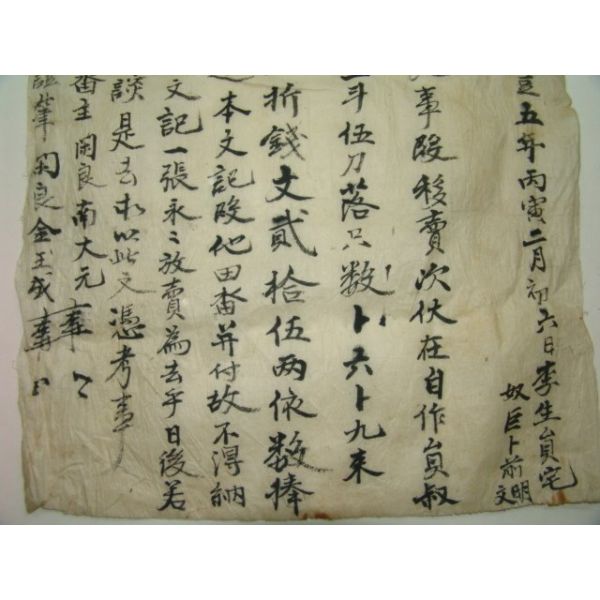 五年丙寅二月初六日李生員宅
奴巨卜前明文
事段移賣次伏在自作員叔
斗伍刀落只数卜六卜九束
折錢文貳拾伍兩依数捧
本文記段他田畓并付故不得納
文記一張永〻放賣為去乎日後若
談是去未以此文憑考事
畓主閑良南大元
筆閑良金玉成